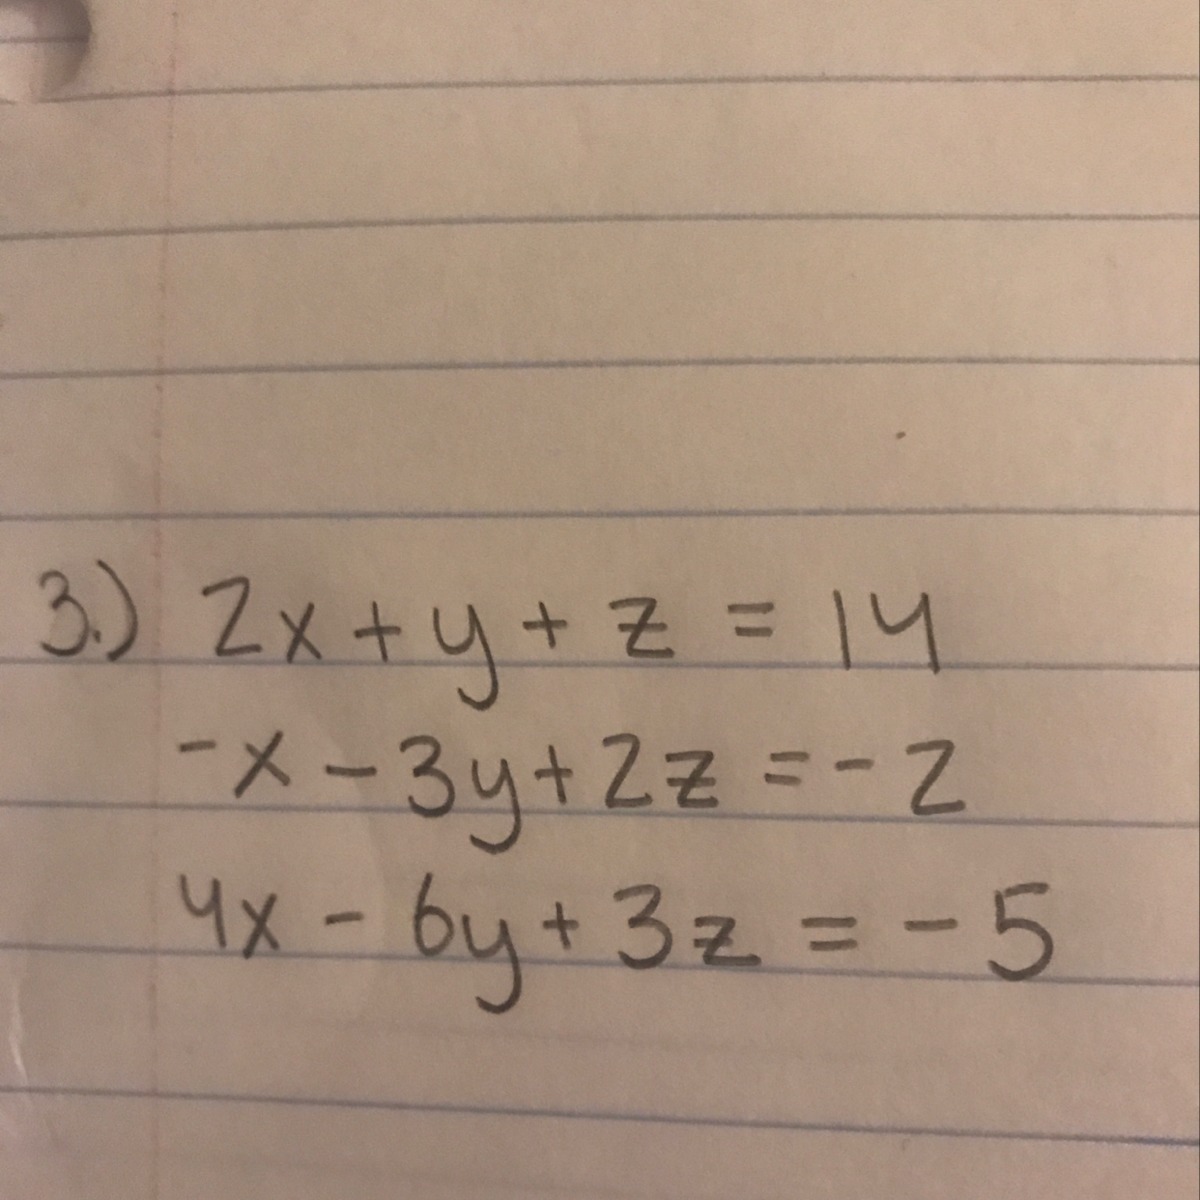 3.) 2x + y + z = 14
-x - 3y + 2z = -2
4x - 6y + 3z = -5